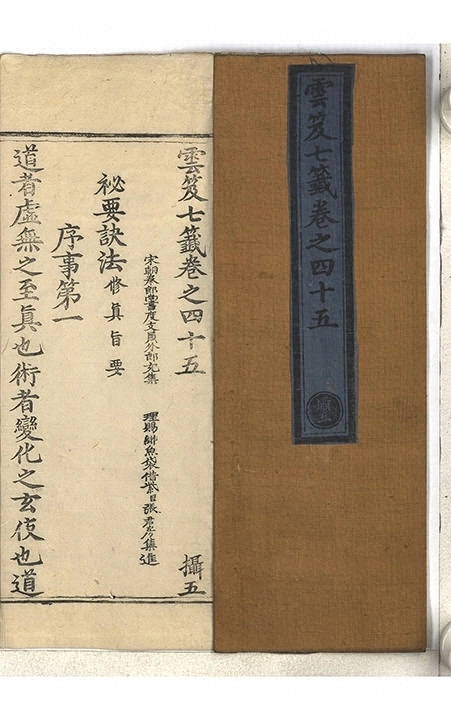 雲笈七籤卷之四十五
攝五
雲笈七籤卷之四十五
攝五
宋朝奉郎尚書度支員外郎充集
理賜緋魚袋借紫臣張君房集進
祕要訣法修真旨要
序事第一
道者虛無之至真也術者變化之玄伎也道